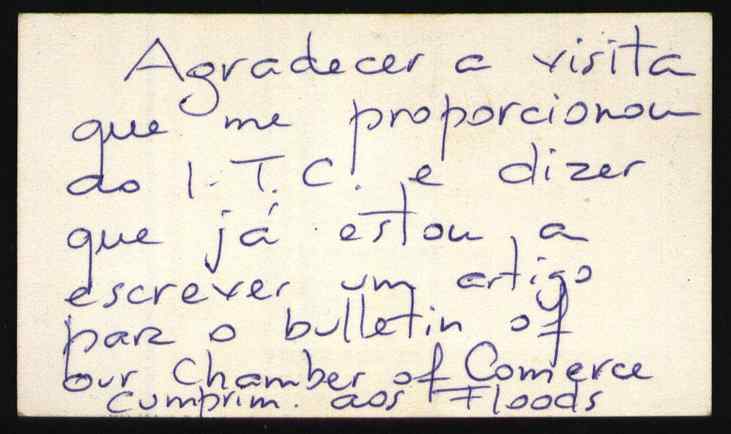 Agradecer a visita
que me proporcionou
ao I.T.C. e dizer
que já estou a
escrever um artigo
para o bulletin of
our Chamber of Comerce
cumprim. aos Floods